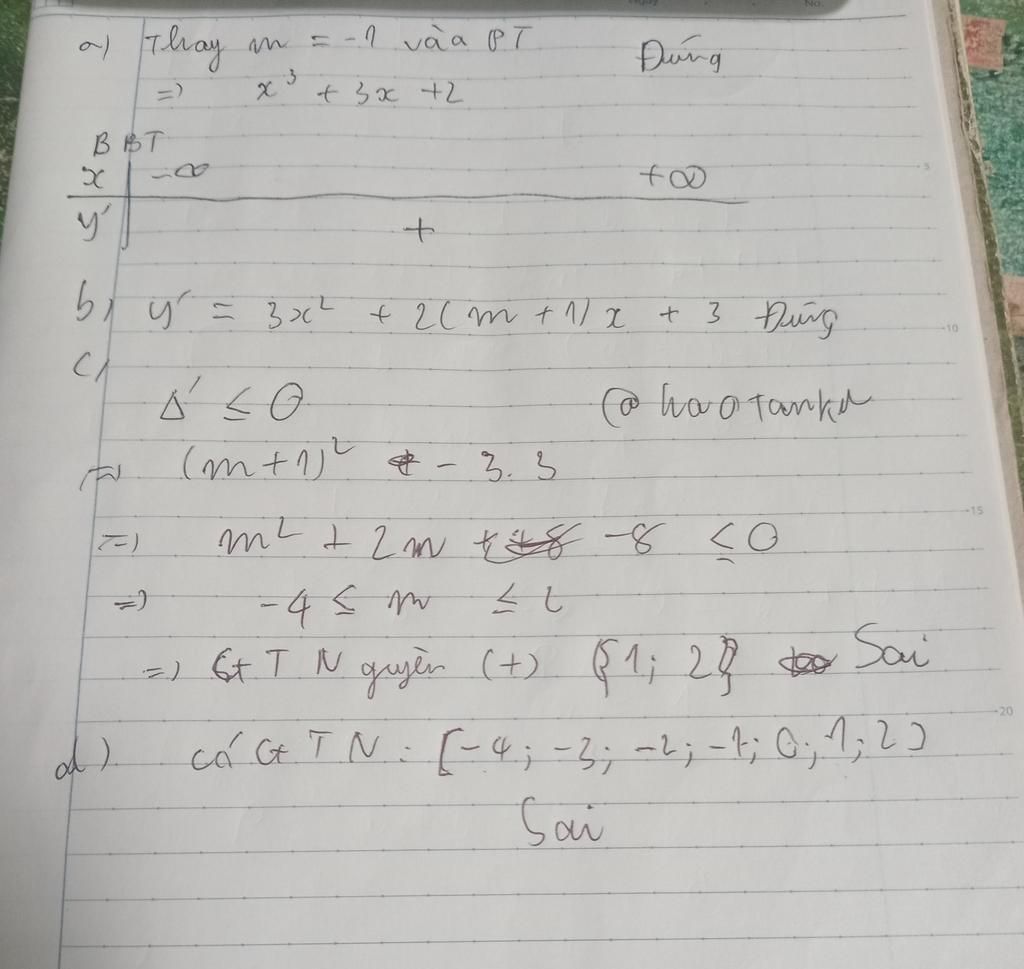 a) Thay m = -1 vàa PT Đúng
=> x³ + 3x + 2
BBT
x -∞ +∞
y' +
b) y' = 3x² + 2(m + 1)x + 3 Đúng
c)
Δ' ≤ 0 @haotankd
(m+1)² - 3.3
=> m² + 2m -8 ≤ 0
=> -4 ≤ m ≤ 2
=> GTNguyên (+) {1; 2} Sai
d) Có GTN: [-4; -3; -2; -1; 0; 1; 2]
Sai
5
10
15
20
No.